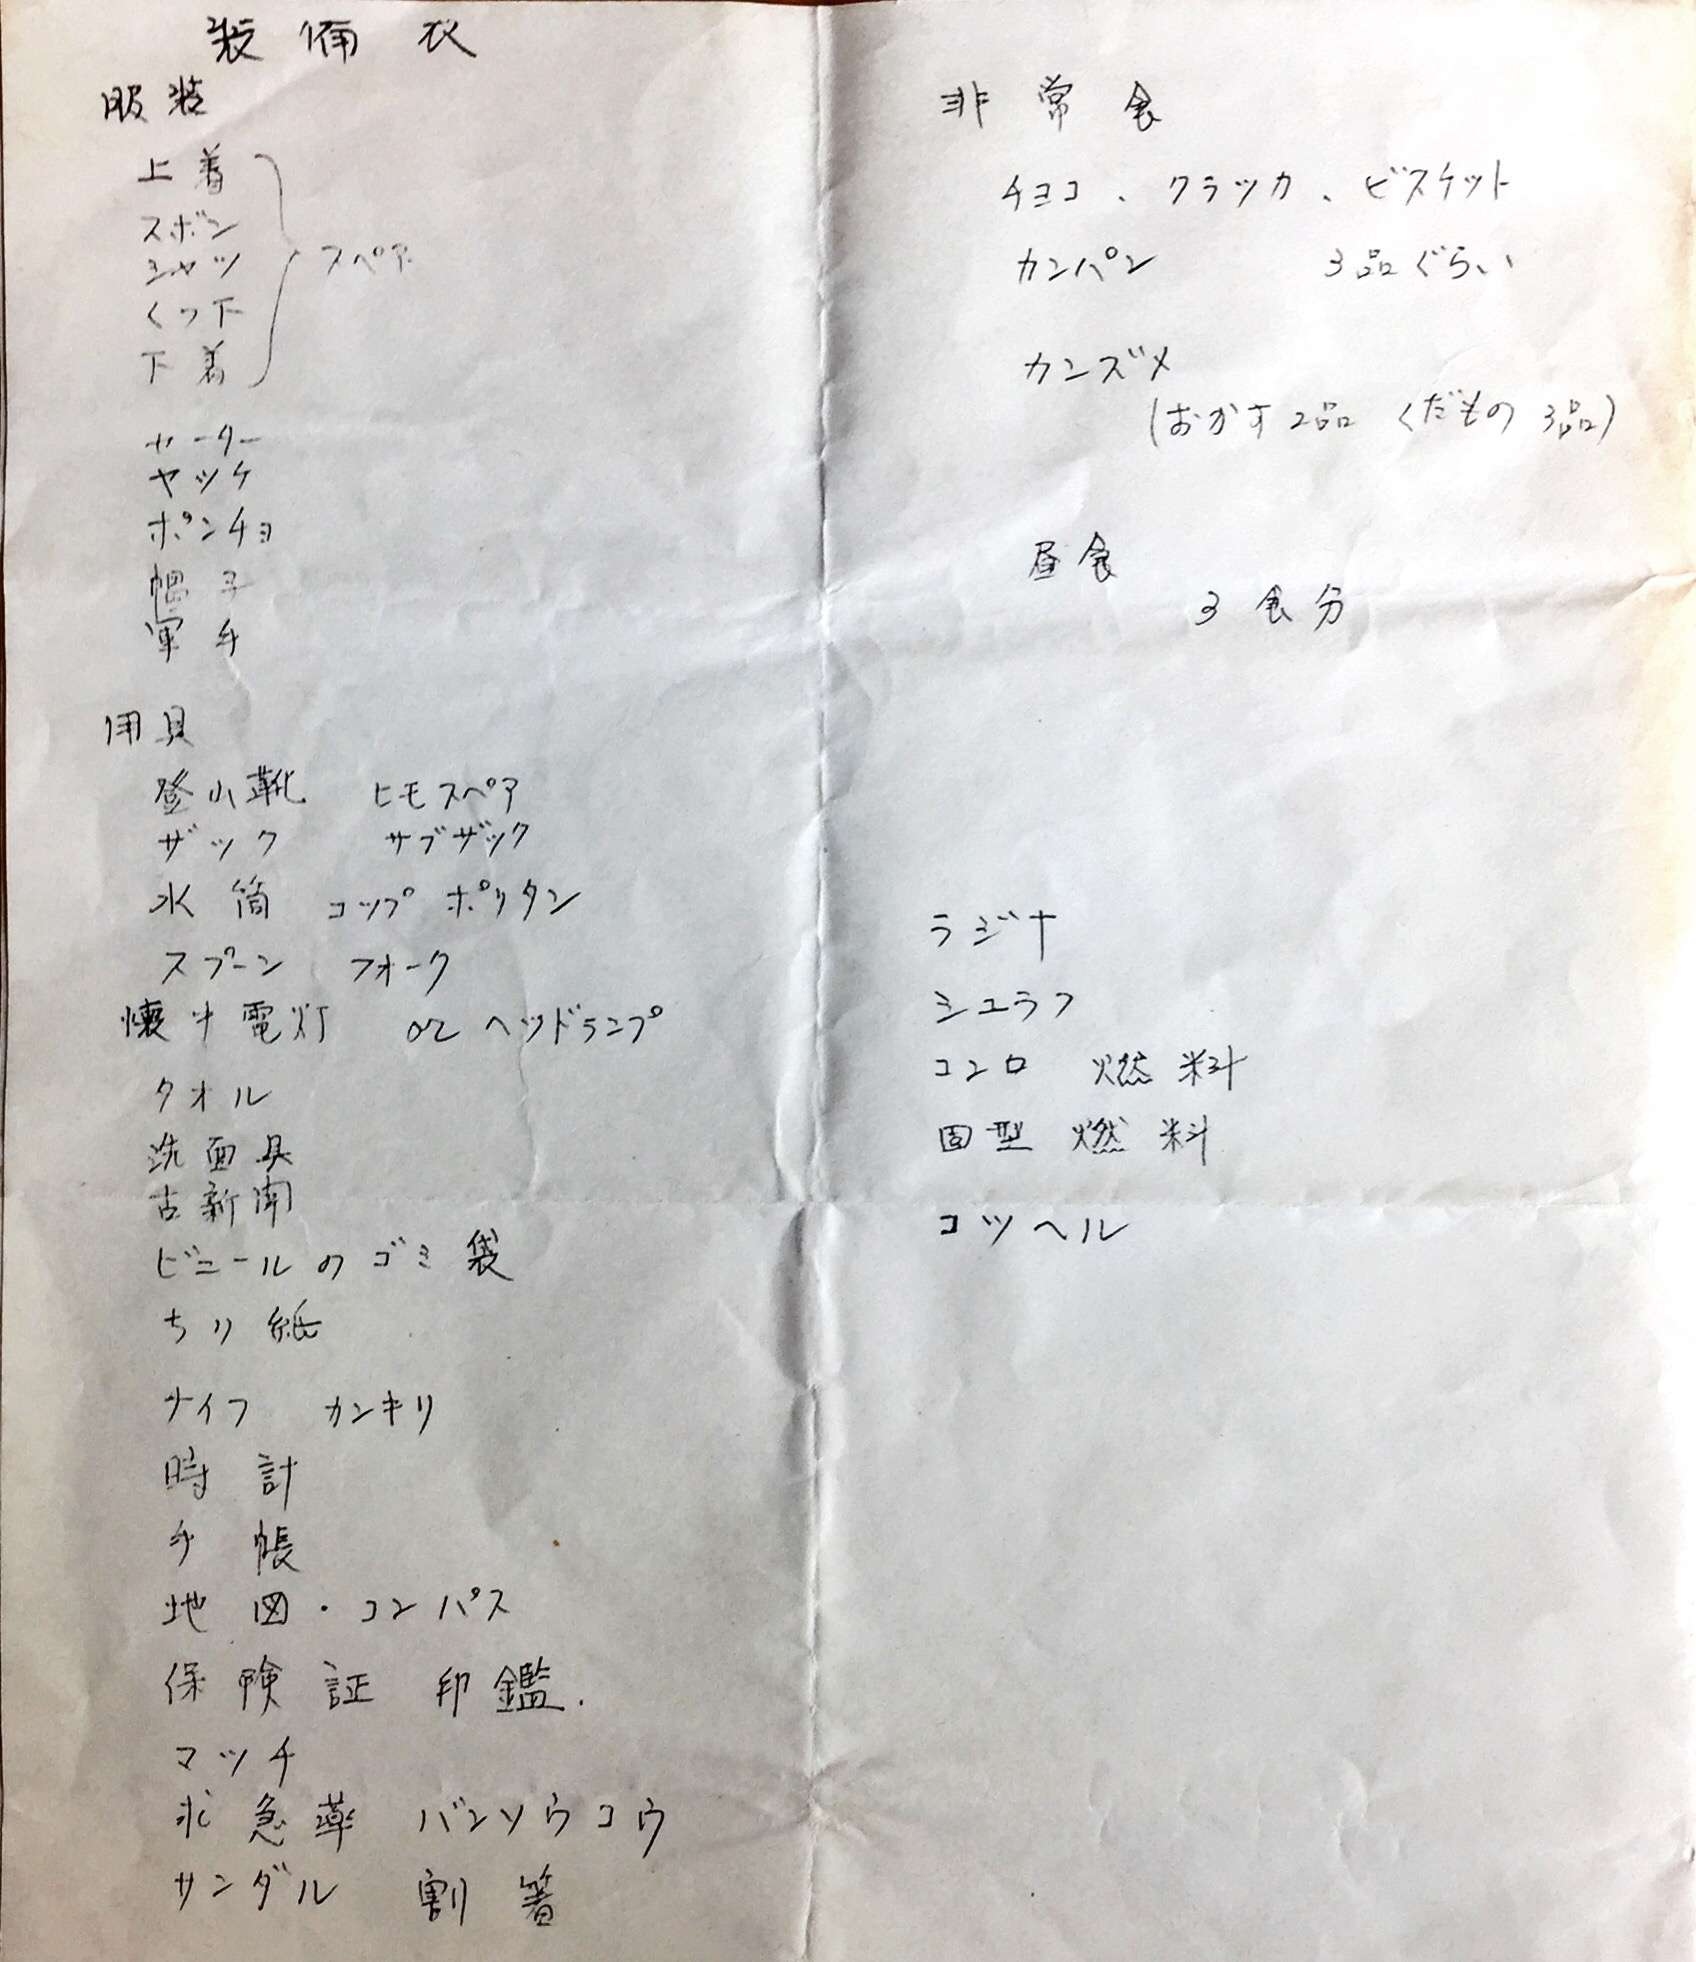 装備衣
服装
上着
スボン
シャツ
くつ下
下着
スペア
セーター
ヤッケ
ポンチョ
帽子
軍手
用具
登山靴 ヒモスペア
ザック サブザック
水筒 コップ ポリタン
スプーン フォーク
懐中電灯 or ヘッドランプ
タオル
洗面具
古新聞
ビニールのゴミ袋
ちり紙
ナイフ カンキリ
時計
手帳
地図・コンパス
保険証 印鑑.
マッチ
救急薬 バンソウコウ
サンダル 割箸
非常食
チョコ、クラッカ、ビスケット
カンパン 3品ぐらい
カンズメ
(おかず2品 くだもの3品)
昼食
3食分
ラジオ
シュラフ
コンロ 燃料
固型燃料
コッヘル